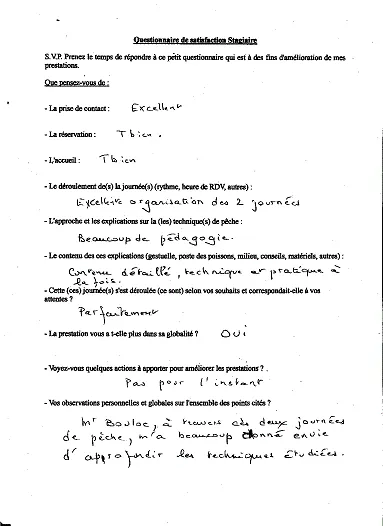 Questionnaire de satisfaction Stagiaire
S.V.P. Prenez le temps de répondre à ce petit questionnaire qui est à des fins d'amélioration de mes
prestations.
Que pensez-vous de :
- La prise de contact : Excellent
- La réservation : T bien.
- L'accueil : T bien
- Le déroulement de(s) la journée(s) (rythme, heure de RDV, autres) :
Excellente organisation des 2 journées
- L'approche et les explications sur la (les) technique(s) de pêche :
Beaucoup de pédagogie.
- Le contenu des ces explications (gestuelle, poste des poissons, milieu, conseils, matériels, autres) :
Contenu détaillé, technique et pratique à
la fois.
- Cette (ces) journée(s) s'est déroulée (ce sont) selon vos souhaits et correspondait-elle à vos
attentes ?
Parfaitement
- La prestation vous a t-elle plus dans sa globalité ? OUI
- Voyez-vous quelques actions à apporter pour améliorer les prestations ? .
Pas pour l'instant
- Vos observations personnelles et globales sur l'ensemble des points cités ?
Mr Bouloc, à travers ces deux journées
de pêche, m'a beaucoup donné envie
d'approfondir les techniques étudiées.